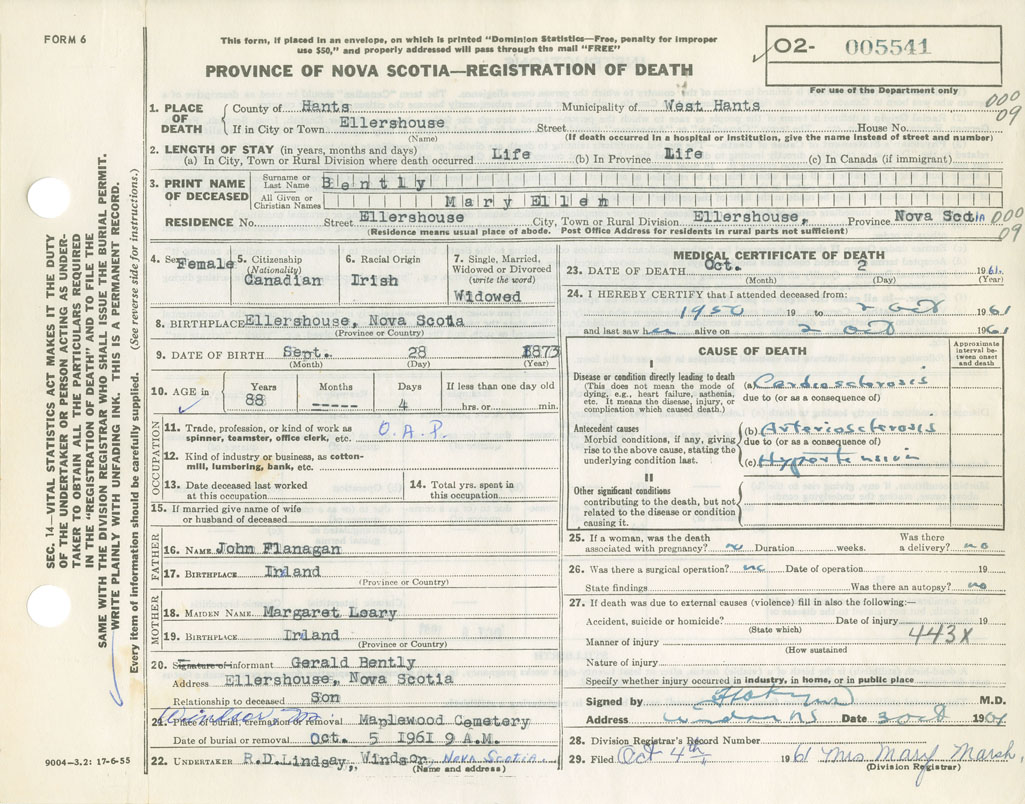 FORM 6
This form, if placed in an envelope, on which is printed "Dominion Statistics—Free, penalty for improper
use $50," and properly addressed will pass through the mail "FREE"
PROVINCE OF NOVA SCOTIA—REGISTRATION OF DEATH
O2- 005541
For use of the Department only
000
09
1. PLACE OF DEATH County of Hants Municipality of West Hants
If in City or Town Ellershouse Street House No.
(Name) (If death occurred in a hospital or institution, give the name instead of street and number)
2. LENGTH OF STAY (in years, months and days)
(a) In City, Town or Rural Division where death occurred Life (b) In Province Life (c) In Canada (if immigrant)
3. PRINT NAME OF DECEASED Surname or Last Name Bently
All Given or Christian Names Mary Ellen
RESIDENCE No. Street Ellershouse City, Town or Rural Division Ellershouse, Province Nova Scotia
(Residence means usual place of abode. Post Office Address for residents in rural parts not sufficient)
000
09
4. Sex Female
5. Citizenship (Nationality) Canadian
6. Racial Origin Irish
7. Single, Married, Widowed or Divorced (write the word) Widowed
8. BIRTHPLACE Ellershouse, Nova Scotia
(Province or Country)
9. DATE OF BIRTH Sept. 28 1873
(Month) (Day) (Year)
10. AGE in Years 88 Months ----- Days 4 If less than one day old hrs. or min.
OCCUPATION
11. Trade, profession, or kind of work as spinner, teamster, office clerk, etc. O.A.P.
12. Kind of industry or business, as cotton-mill, lumbering, bank, etc.
13. Date deceased last worked at this occupation
14. Total yrs. spent in this occupation
15. If married give name of wife or husband of deceased
FATHER
16. NAME John Flanagan
17. BIRTHPLACE Irland
(Province or Country)
MOTHER
18. MAIDEN NAME Margaret Leary
19. BIRTHPLACE Irland
(Province or Country)
20. Signature of informant Gerald Bently
Address Ellershouse, Nova Scotia
Relationship to deceased Son
21. Place of burial, cremation or removal Maplewood Cemetery
Date of burial or removal Oct. 5 1961 9 A.M.
22. UNDERTAKER R.D.Lindsay, Windsor, Nova Scotia
(Name and address)
MEDICAL CERTIFICATE OF DEATH
23. DATE OF DEATH Oct. 2 1961
(Month) (Day) (Year)
24. I HEREBY CERTIFY that I attended deceased from:
1950 19 to 2 Oct 1961
and last saw her alive on 2 Oct 1961
CAUSE OF DEATH
Approximate interval between onset and death
I
Disease or condition directly leading to death
(This does not mean the mode of dying, e.g., heart failure, asthenia, etc. It means the disease, injury, or complication which caused death.)
(a) Cardiosclerosis
due to (or as a consequence of)
Antecedent causes
Morbid conditions, if any, giving rise to the above cause, stating the underlying condition last.
(b) Arteriosclerosis
due to (or as a consequence of)
(c) Hypertension
II
Other significant conditions
contributing to the death, but not related to the disease or condition causing it.
25. If a woman, was the death associated with pregnancy? no Duration weeks. Was there a delivery? no
26. Was there a surgical operation? no Date of operation 19
State findings Was there an autopsy? no
27. If death was due to external causes (violence) fill in also the following:—
Accident, suicide or homicide? Date of injury 19
(State which)
443X
Manner of injury
(How sustained
Nature of injury
Specify whether injury occurred in industry, in home, or in public place
Signed by M.D.
Address Windsor NS Date 3 Oct 1961
28. Division Registrar's Record Number
29. Filed Oct 4th 1961 Mrs Mary Marsh
(Division Registrar)
SEC. 14—VITAL STATISTICS ACT MAKES IT THE DUTY
OF THE UNDERTAKER OR PERSON ACTING AS UNDER-
TAKER TO OBTAIN ALL THE PARTICULARS REQUIRED
IN THE "REGISTRATION OF DEATH" AND TO FILE THE
SAME WITH THE DIVISION REGISTRAR WHO SHALL ISSUE THE BURIAL PERMIT.
WRITE PLAINLY WITH UNFADING INK. THIS IS A PERMANENT RECORD.
Every item of information should be carefully supplied. (See reverse side for instructions.)
9004—3.2: 17-6-55